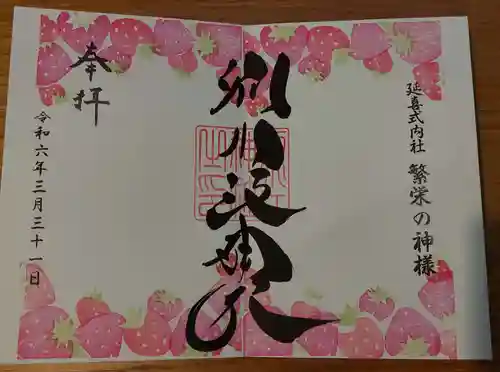 延喜式内社 繁栄の神様
別小江神社
奉拝
令和六年三月三十一日